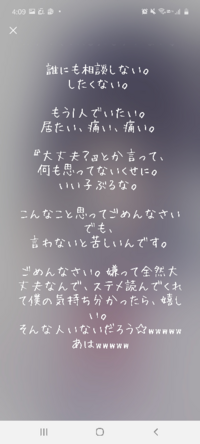 4:09
誰にも相談しない。
したくない。
もう1人でいたい。
居たい、痛い、痛い。
『大丈夫？』とか言って、
何も思ってないくせに。
いい子ぶるな。
こんなこと思ってごめんなさい
でも、
言わないと苦しいんです。
ごめんなさい。嫌って全然大
丈夫なんで、ステメ読んでくれ
て僕の気持ち分かったら、嬉し
い。
そんな人いないだろう☆wwwww
あはwwwww